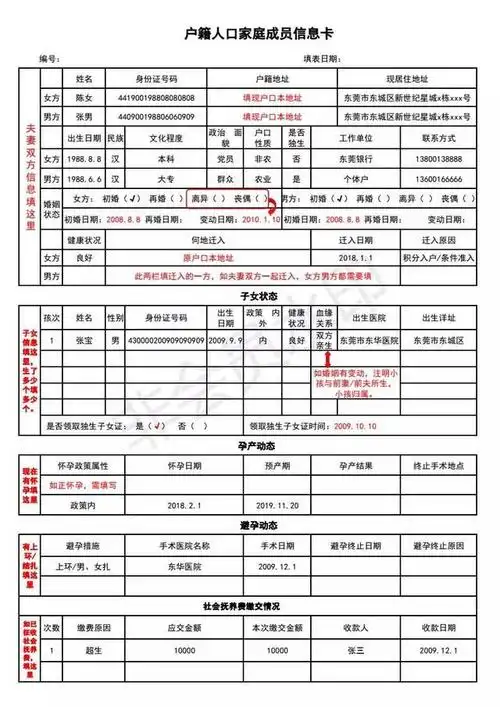 户籍人口家庭成员信息卡
编号： 填表日期：
夫妻双方信息填这里
姓名 身份证号码 户籍地址 现居住地址
女方 陈女 441900198808080808 填现户口本地址 东莞市东城区新世纪星城x栋xxx号
男方 张男 440900198806060909 填现户口本地址 东莞市东城区新世纪星城x栋xxx号
出生日期 民族 文化程度 政治面貌 户口性质 是否独生 工作单位 联系方式
女方 1988.8.8 汉 本科 党员 非农 否 东莞银行 13800138888
男方 1988.6.6 汉 大专 群众 农业 是 个体户 13600166666
婚姻状态 女方：初婚（√）再婚（ ）离异（ ）丧偶（ ） 男方：初婚（√）再婚（ ）离异（ ）丧偶（ ）
初婚日期：2008.8.8 再婚日期： 变动日期：2010.1.10 初婚日期：2008.8.8 再婚日期： 变动日期：
健康状况 何地迁入 迁入日期 迁入原因
女方 良好 原户口本地址 2018.1.1 积分入户/条件准入
男方 此两栏填迁入的一方，如夫妻双方一起迁入，女方男方都需要填
子女状态
子女信息填这里，生了多少个填多少个。
孩次 姓名 性别 身份证号码 出生日期 政策内外 健康状况 血缘关系 出生医院 出生详址
1 张宝 男 430000200909090909 2009.9.9 内 良好 双方亲生 东莞市东华医院 东莞市东城区
如婚姻有变动，注明小孩与前妻/前夫所生，小孩归属。
是否领取独生子女证：是（√） 否（ ） 领取独生子女证时间：2009.10.10
孕产动态
现在有怀孕填这里
怀孕政策属性 怀孕日期 预产期 孕产结果 终止手术地点
如正怀孕，需填写
政策内 2018.2.1 2019.11.20
避孕动态
有上环/结扎填这里
避孕措施 手术医院名称 手术日期 避孕终止日期 避孕终止原因
上环/男、女扎 东华医院 2009.12.1
社会抚养费缴交情况
如已征收社会抚养费，填这里
次数 缴费原因 应交金额 本次缴交金额 收款人 收款日期
1 超生 10000 10000 张三 2009.12.1
非会员水印